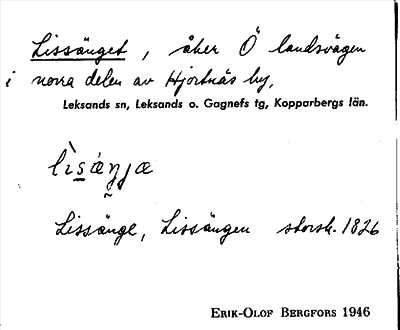 Lissänget, åker Ö landsvägen
i norra delen av Hjortnäs by,
Leksands sn, Leksands o. Gagnefs tg, Kopparbergs län.
lìsáŋjæ
Lissänge, Lissängen storsk. 1826
ERIK-OLOF BERGFORS 1946